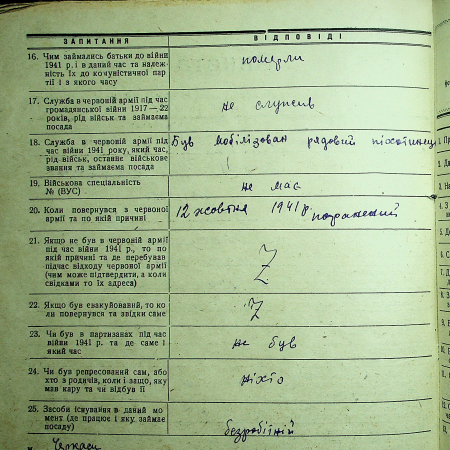 ЗАПИТАННЯ
ВІДПОВІДІ
16. Чим займались батьки до війни
1941 р. і в даний час та належ-
ність їх до комуністичної пар
тії і з якого часу
померли
17. Служба в червоній армії під час
громадянської війни 1917—22
років, рід військ та займаєма
посада
не служив
18. Служба в червоній армії під
час війни 1941 року, який час,
рід військ, останнє військове
звання та займаєма посада
Був мобілізован рядовий піхотинець
19. Військова спеціяльність
№ (ВУС)
не має
20. Коли повернувся з червоної
армії та по якій причині
12 жовтня 1941 р. поранений
21. Якщо не був в червоній армії
під час війни 1941 р., то по
якій причині та де перебував
підчас відходу червоної армії
(чим може підтвердити, а коли
свідками то їх адреса)
Z
22. Якщо був евакуйований, то ко
ли повернувся та звідки саме
Z
23. Чи був в партизанах під час
війни 1941 р. та де саме і
який час
не був
24. Чи був репресований сам, або
хто з родичів, коли і защо, яку
мав кару та чи відбув її
ніхто
25. Засоби існування в даний мо
мент (де працює і яку займає
посаду)
безробітній
Черкаси